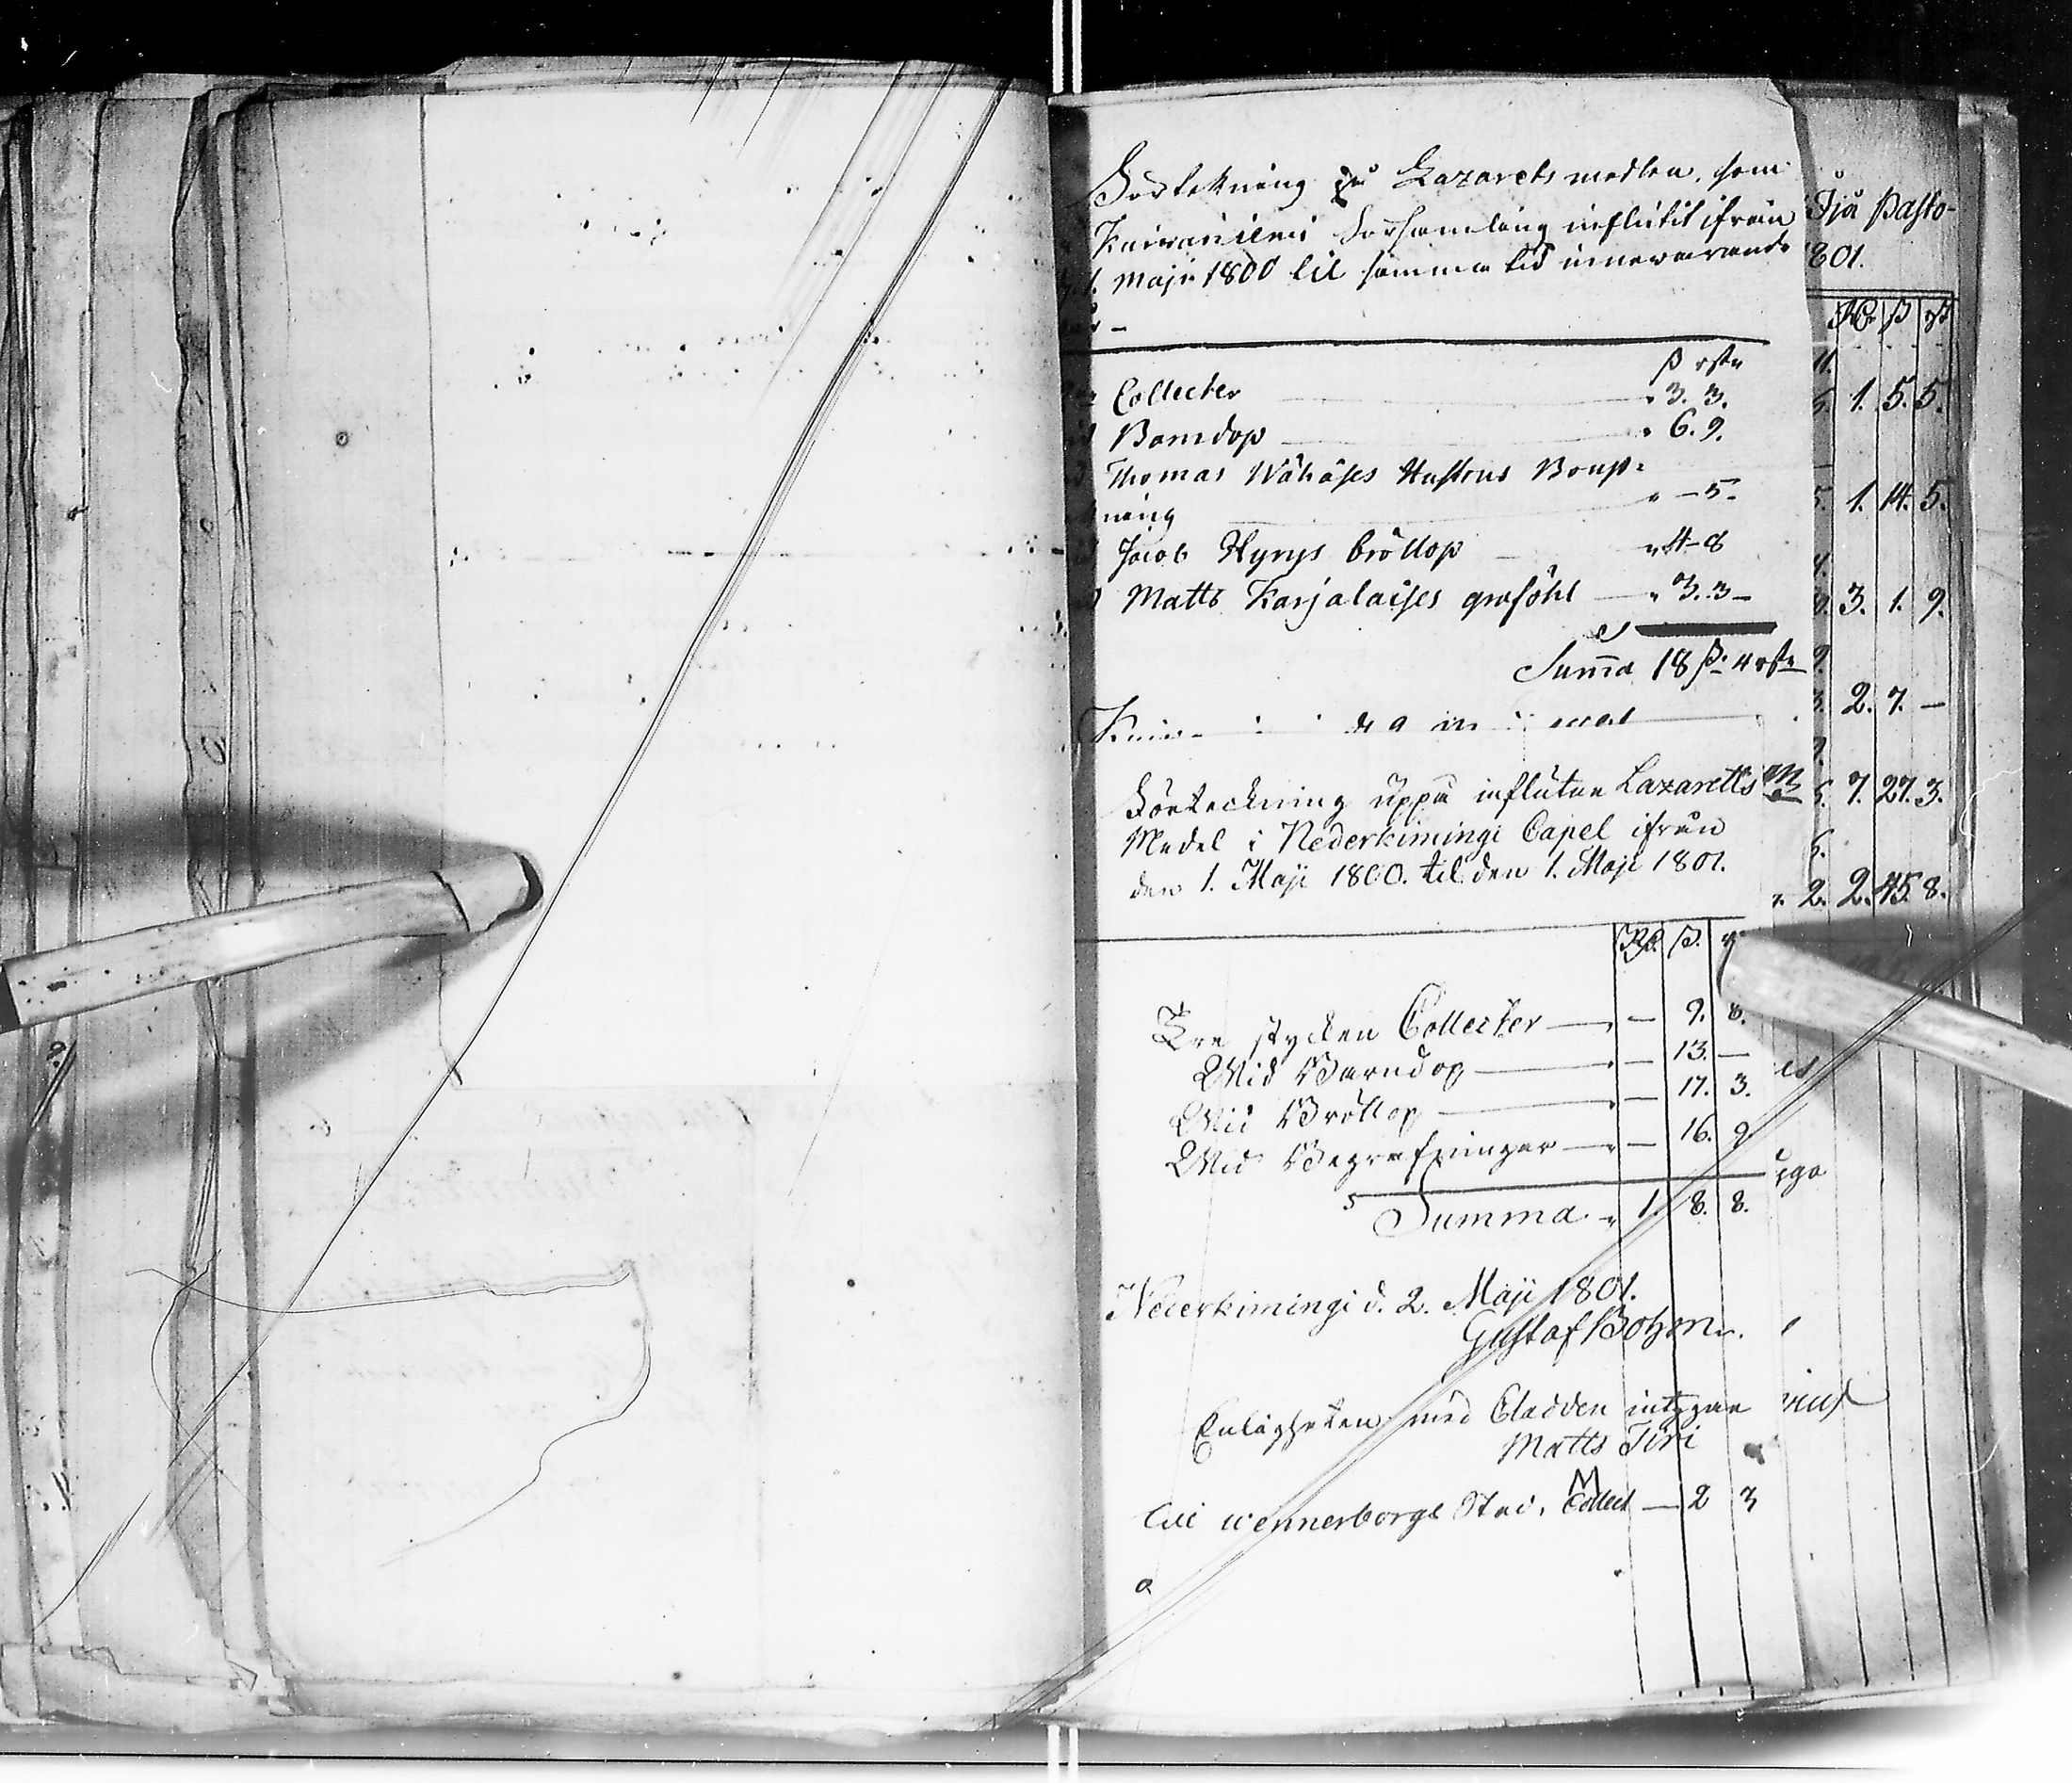 Förtekning på Lazarets medlen, som
Kuivaniemi Församling influtit ifrån
1. Maji 1800 til samma tid innevarande
år –
ß rst
Collecter " 3. 3.
Barndop " 6. 9.
Thomas Wähäses Hustrus Bouptäk-
ning " – 5.
Jacob Hyrys bröllop " 4 – 8
Matts Karjalaises grafööl " 3. 3 –
Summa 18 ß. 4 rst
Förteckning uppå influtne Lazaretts
Medel i Nederkimingi Capel ifrån
den 1. Maji 1800. til den 1. Maji 1801.
Rd. ß. r
Tre stycken Collecter — 9. 8.
Wid Barndop — 13. —
Wid Bröllop — 17. 3.
Wid Begrafningar — 16. 9.
Summa 1. 8. 8.
Nederkimingi d. 2. Maji 1801.
Gustaf Bohm.
Enligheten med Cladden intygar
Matts Tiri
Till Wennerborgs Stad, Collect — 2 3
Ijå Pasto-
1801.
Rd ß rst
1. 5. 5.
1. 14. 5.
3. 1. 9.
2. 7. —
7. 27. 3.
2. 2. 45 8.